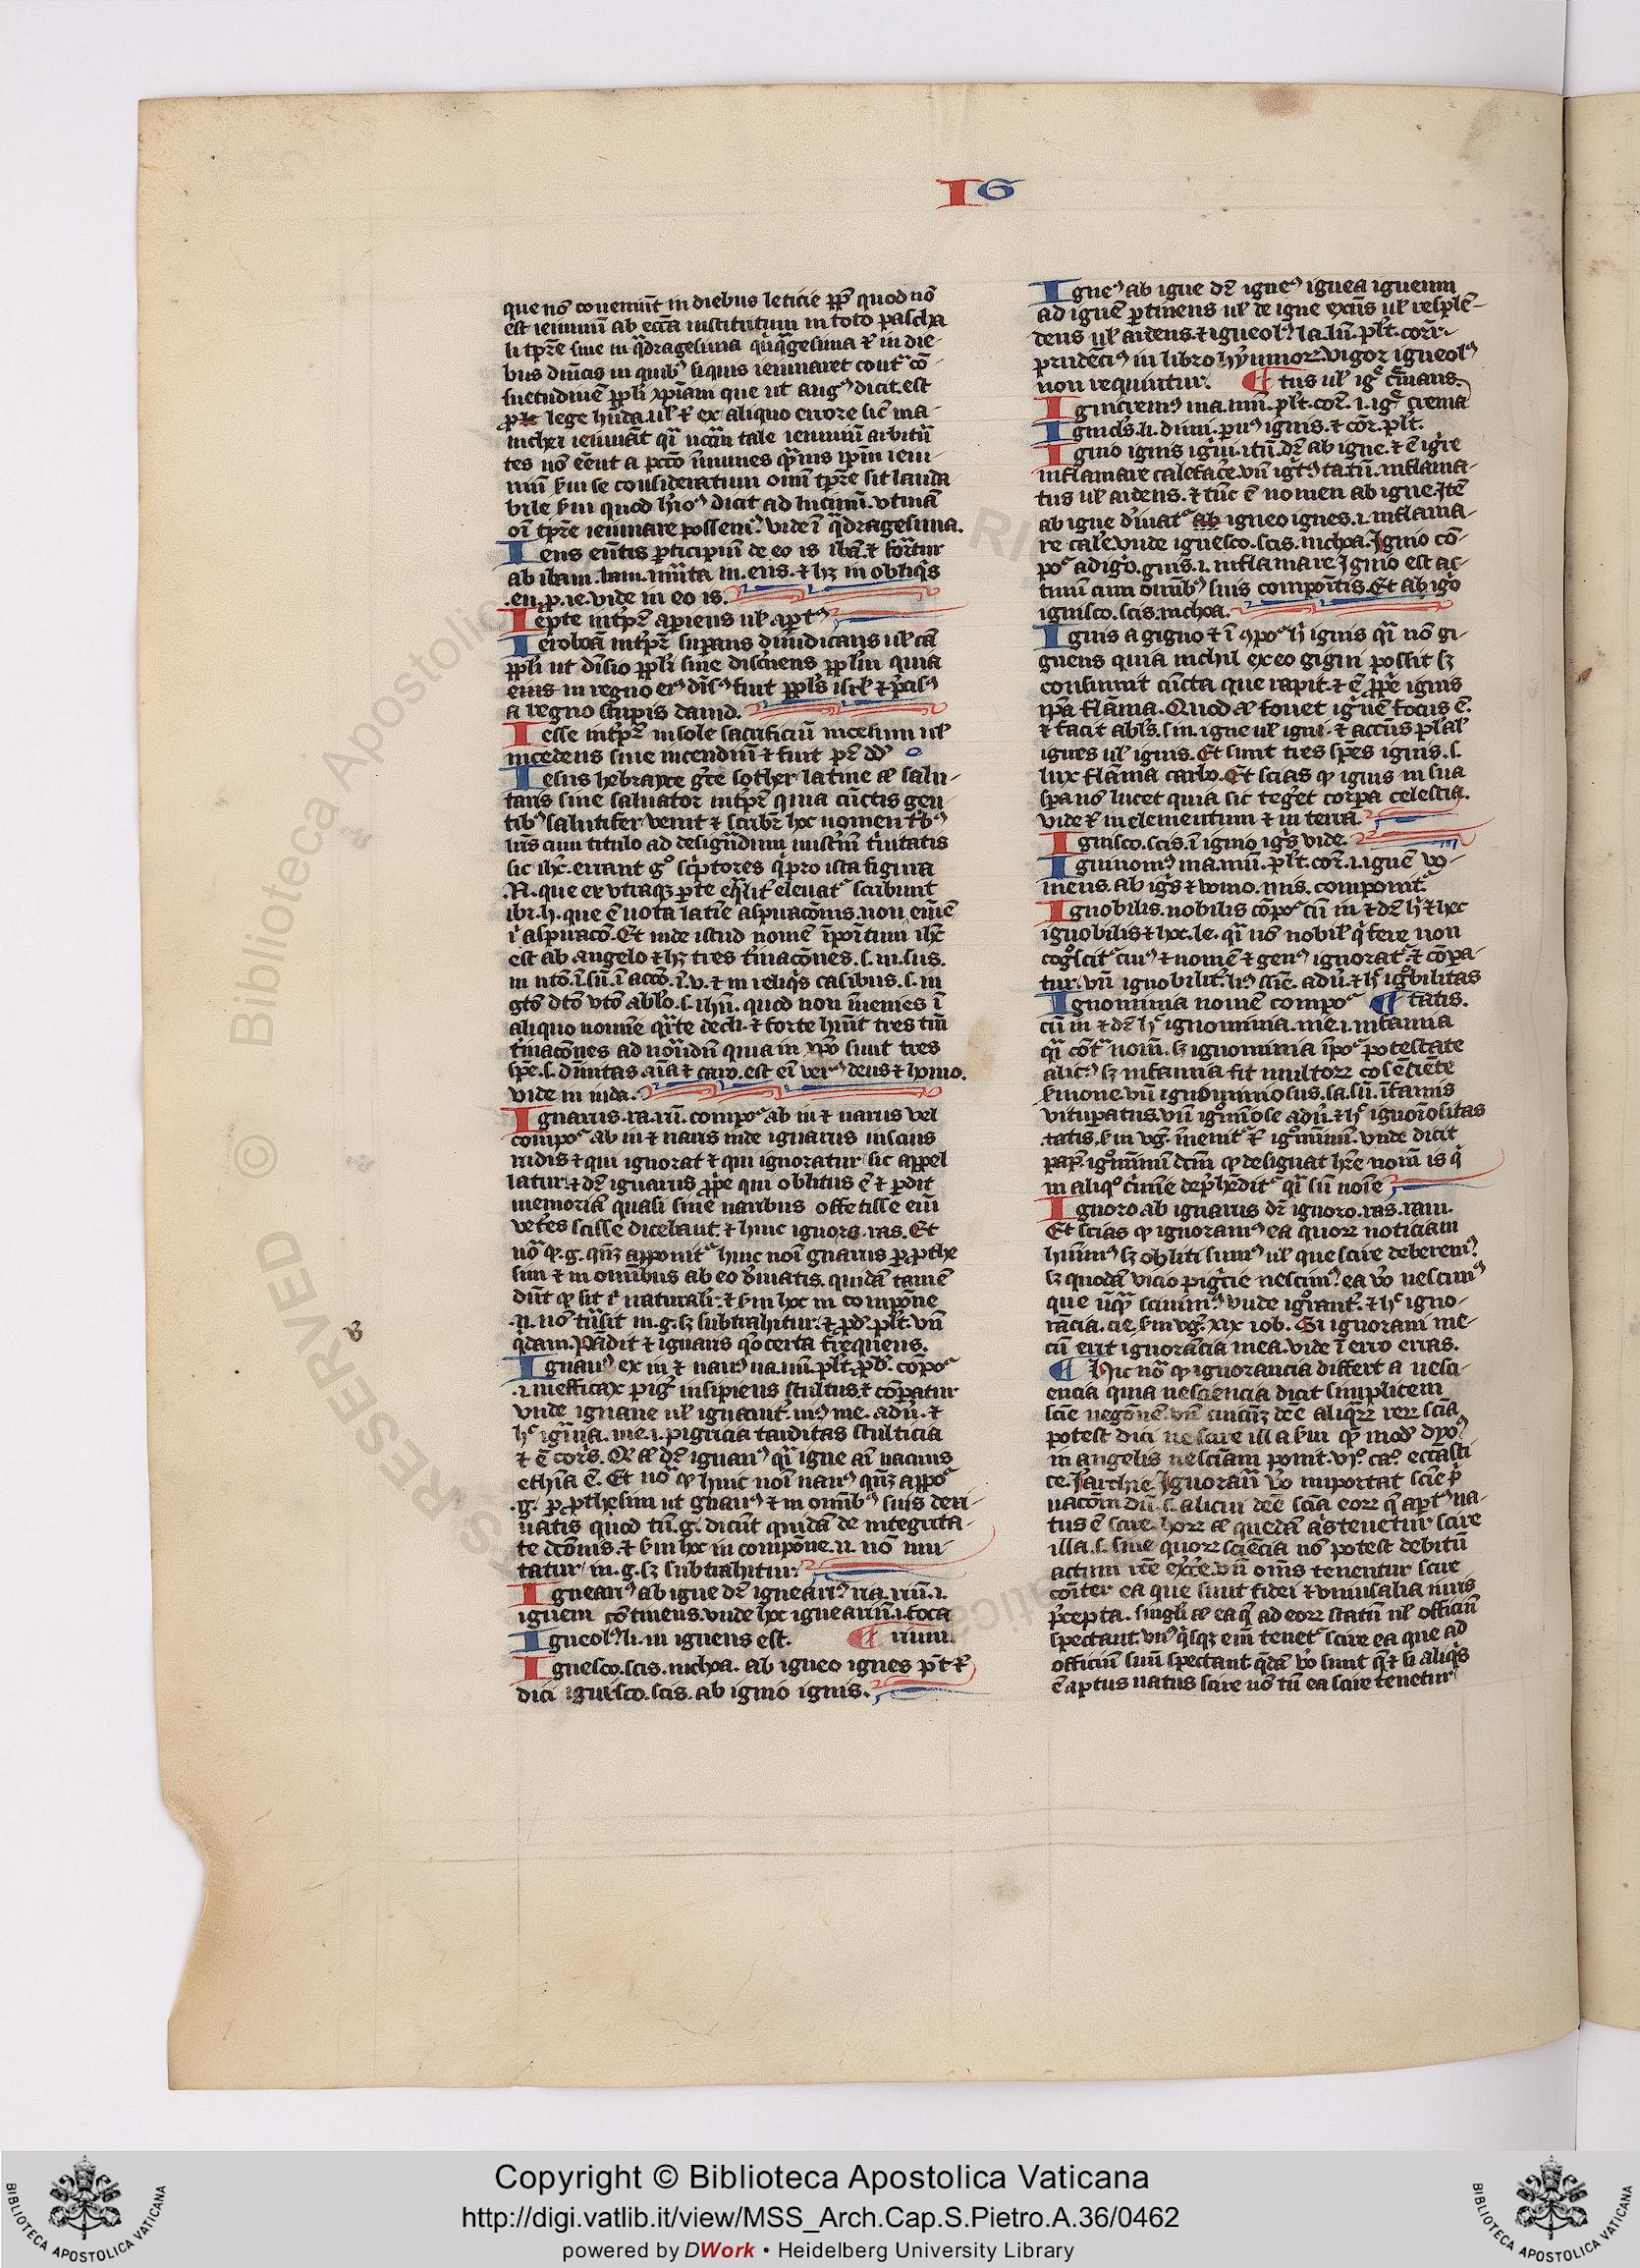 IG
que nō ꝯueniūt in diebus leticie ꝓpt̄ quod nō
est ieiuniū ab ecc̄ia institutum in toto pascha
li tp̄re siue in q̄dragesima q̄nq̄gesima ⁊ in die
bus dn̄icis in quibꝰ siquis ieiunaret contᵃ cō
suetudinē pp̄li xp̄iani que ut augꝰ dicit est
lege hn̄da. ul̓ ⁊ ex aliquo errore sic̄ ma-
nichei ieiunāt
tes nō eēnt a pcc̄o īmunes q̄muis ip̄m ieiu
niū ẜm se consideratum omī tp̄re sit lauda
bile ẜm quod h̓ioꝰ dicit ad lucinū. vtinā
oī tp̄re ieiunare possemꝰ. vide ī q̄dragesima.
Iens eūtis ꝑticipiū de eo is ibā. ⁊ for̄tur
ab ibam. bam. mutata in. ens. ⁊ hꝫ in obliq̄s
.eu. ꝑ. ie. vide in eo is.
Iepte intp̄r̄ apiens ul̓ aptꝰ
Ieroboā intp̄r̄ supans diiudicans ul̓ cā
pp̄li ut diuisio pp̄li siue discernens pp̄lm quia
eius in regno
a regno stirpis dauid.
Iesse intp̄r̄ insole sacrificiū incesum ul̓
incedens siue incendiū ⁊ fuit pr̄ dd̄
Iesus hebrayce gr̄ce sother latine salu-
taris siue saluator intp̄r̄ quia cūctis gen
tibꝰ salutifer venit ⁊ scribr̄ hoc nomen
lr̄is cum titulo ad designādum mist̄iū t̓nitatis
sic ihc̄. errant gº sc̓ptores q̓ pro ista figura
.H. que ex vtraqꝫ ꝑte eq̄lit̓ eleuatᵉ scribunt
ibi. h. que ē nota latīe aspiracōnis. non em̄ ē
ī aspiracō. Et inde istud nomē īpo̓itum ihc̄
est ab angelo ⁊ hꝫ tres t̓minacōnes. s. in. sus.
in ntō. ī. sū. ī accō. ī. v. ⁊ in reliq̓s casibus. s. in
gtō dtō vtō ablō. s. ihū. quod non īuenies ī
aliquo nomīe q̄rte decli. ⁊ forte hūit tres tm̄
t̓minacōnes ad nōndū quia in xpō sunt tres
spē. s. diuītas. aīa ⁊ caro. est eī verꝰ deus ⁊ homo.
vide in iuda.
Ignarus. ra. rū. compoᵉ ab in ⁊ narus vel
compoᵉ ab in ⁊ naris inde ignarus inscius
rudis ⁊ qui ignorat ⁊ qui ignoratur sic appel
latur. ⁊ dr̄ ignarus ꝓpe qui oblitus ē ⁊ ꝑdit
memoriā quasi sine naribus offetisse em̄
vet̓es scisse dicebant. ⁊ hinc ignoro. ras. Et
nōᵃ ꝙ. g. qn̄qꝫ apponitᵉ huic noī gnarus ꝑ ꝓthe
sim ⁊ in omībus ab eo d̓iuatis. quidā tamē
dn̄t ꝙ sit ī naturali. ⁊ ẜm hoc in compōne
.n. nō tn̄sit in. g. sꝫ subtrahitur. ⁊ pdº. plt̄. vn̄
q̓dam. Pādit ⁊ ignaris q̄ certa frequens.
Ignauꝰ ex in ⁊ nauꝰ na. uū. plt̄. pd̄. cōpoᵉ
.i. inefficax pig̓ insipiens stultus. ⁊ cōꝑatur
vnde ignaue ul̓ ignauit̓. iuꝰ me. adū. ⁊
hᵉ ignīa. me. i. pigricia tarditas stulticia
⁊ ē coꝛ̄s. dr̄ ignauꝰ q̄i igne aī vacuus
ethīa ē. Et nōᵃ ꝙ huic noī nauꝰ qn̄qꝫ appoᵉ
.g. ꝑ ꝓthesim ut gnauꝰ ⁊ in omībꝰ suis deri-
uatis quod tn̄. g. dicūt quidā de integrita-
te dcōnis. ⁊ ẜm hoc in compōne. n. nō mu-
tatur in. g. sꝫ subtrahitur.
Igneariꝰ ab igne dr̄ ignearꝰ ria. riū. i.
ignem cōtinens. vnde hoc ignearīū. i. foca
Igneolꝰ. li. in igneus est. ¶ rium.
Ignesco. scis. inchoa. ab igneo ignes pt̄ ⁊
dici ignesco. scis. ab ignio ignis.
Igneꝰ ab igne dr̄ igneꝰ ignea igneum
ad ignē ꝑtinens ul̓ de igne exn̄s ul̓ resplē-
dens ul̓ ardens. ⁊ igneolꝰ. la. lū. plt̄. corr̄.
prudēciꝰ in libro hȳmnoꝝ. vigor igneolꝰ
non requiritur. ¶ tus ul̓ igᵉ c̓mans.
Ignicremꝰ ma. mū. plt̄. cor̄. i. igᵉ crema
Igniclꝰs. li. dimi. ꝑuꝰ ignis. ⁊ cōr. plt̄.
Ignio ignis igīui. itū. dr̄ ab igne. ⁊ ē ignīre
inflamare calefac̓e. vn̄ ignītꝰ. ta. tū. inflama-
tus ul̓ ardens. ⁊ tūc ē nomen ab igne. Itē
ab igne d̓iuatᵉ ab igneo ignes. i. inflama-
re cale. vnde ignesco. scis. inchoa. Ignio cō-
poᵉ adignīo. gnis. i. inflamare. Ignio est ac-
tiuū cum omībꝰ suis compōitis. Et ab ignīo
ignisco. scis. inchoa.
Ignis a gigno ⁊ ī ꝯpoᵉ h̓ ignis q̄i nō gi-
gnens quia nichil ex eo gigni possit sꝫ
consumit cūcta que rapit. ⁊ ē ꝓprē ignis
ip̄a flāma. Quod fouet ignē focus ē.
⁊ facit abl̓s. sin. igne ul̓ igni. ⁊ accūs pl̓al̓
ignes ul̓ ignis. Et sunt tres spēs ignis. s.
lux flāma carbo. Et scias ꝙ ignis in sua
spa nō lucet quia sic teg̓et corꝑa celestia.
vide ⁊ in elementum ⁊ in terra.
Ignisco. scis. ī ignio ignīs vide.
Igniuomꝰ ma. mū. plt̄. cor̄. i. ignē vo-
mens. ab ignīs ⁊ uomo. mis. componitᵉ.
Ignobilis. nobilis cōpoᵉ cū in ⁊ dr̄ h̓ ⁊ hec
ignobilis ⁊ hoc. le. q̄i nō nobil̓ q̓ fere non
cognoscitᵉ cuiꝰ ⁊ nomē ⁊ genꝰ ignoratᵉ. ⁊ cōꝑa-
tur. vn̄ ignobilit̓. liꝰ. ssīe. adū. ⁊ hᵉ ignobilitas
Ignominia nomē compoᵉ ¶ tatis.
cū in ⁊ dr̄ hᵉ ignominia. nie. i. infamia
q̄i cōtᵃ nom̄. sꝫ ignominia īpoᵉ potestate
alicꝰ sꝫ infamia fit multoꝝ cosēciēte
ẜmone. vn̄ ignominiosus. sa. sū. infamis
vituꝑatus. vn̄ ignomīose adū. ⁊ hᵉ ignomīositas
.tatis. ẜm vg̓. īuenitᵉ ⁊ ignomīniū. vnde dicit
pap̓. ignomīniū dcm̄ ꝙ designat h̓re nom̄ is q̓
in aliqº c̓mīe dep̓henditᵉ q̄i sn̄ noīe
Ignoro ab ignarus dr̄ ignoro. ras. raui.
Et scias ꝙ ignoramꝰ ea quoꝝ noticiam
hūimꝰ sꝫ obliti sumꝰ ul̓ que scire deberemꝰ.
sꝫ quodā vicio pigr̓cie nescimꝰ. ea vº nescimꝰ
que nūq̄ sciuimꝰ. vnde ignorant̓. ⁊ hᵉ igno-
rācia. cie. ẜm vg̓. xix iob. Si ignoraui me-
cū erit ignorācia mea. vide ī erro erras.
¶ Hic nōᵃ ꝙ ignorancia differt a nesci-
encia quia nesciencia dicit simplicem
scīe negōnē vn̄ cuicūqꝫ deē aliquaꝝ reꝝ scīa
potest dici nescire illa ẜm quē modū dyoꝰ
in angelis nesciam ponit. vijº. caº. ecc̄iasti
ce. Jarchie. Ignoran̄ vº importat scīe p̓
uacōm dū. s. alicui deē scīa eoꝝ q̄ aptꝰ na-
tus ē scire. hoꝝ quedā aliq̓s tenetur scire
illa. s. sine quoꝝ sciencia nō potest debitū
actum rcē ex̓cē. vn̄ om̄s tenentur scire
cōit̓er ea que sunt fidei ⁊ vniu̓salia iuris
p̓cepta. singli ea q̄ ad eoꝝ statū ul̓ officiū
spectant. vnꝰ q̓sqꝫ em̄ tenetᵉ scire ea que ad
officiū suū spectant. q̄dā vº sunt q̄ ⁊ si aliq̓s
ē aptus natus scire nō tn̄ ea scire tenetur
© Biblioteca Apostolica
RESERVED
Copyright © Biblioteca Apostolica Vaticana
http://digi.vatlib.it/view/MSS_Arch.Cap.S.Pietro.A.36/0462
powered by DWork • Heidelberg University Library
BIBLIOTECA APOSTOLICA VATICANA
BIBLIOTECA APOSTOLICA VATICANA